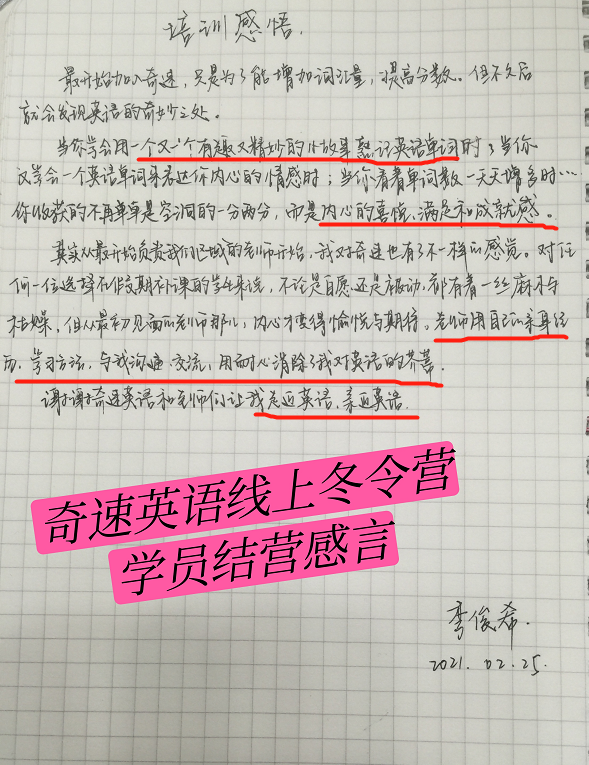 培训感悟.
最开始加入奇速，只是为了能增加词汇量，提高分数。但不久后
就会发现英语的奇妙之处。
当你学会用一个又一个有趣又精妙的小故事熟记英语单词时；当你
又学会一个英语单词来表达你内心的情感时；当你看着单词数一天天增多时…
你收获的不再单单是字词的一分两分，而是内心的喜悦、满足和成就感。
其实从最开始负责我们的老师开始，我对奇速也有了不一样的感觉。对任
何一位选择在假期补课的学生来说，不论是自愿还是被动，都有着一丝麻木与
枯燥，但从最初见面的老师那儿，内心才变得愉悦与期待。老师用自己的亲身经
历、学习方法，与我沟通、交流，用耐心消除了我对英语的芥蒂.
谢谢奇速英语和老师们让我走近英语、亲近英语.
奇速英语线上冬令营
学员结营感言
俊希.
2021. 02. 25.